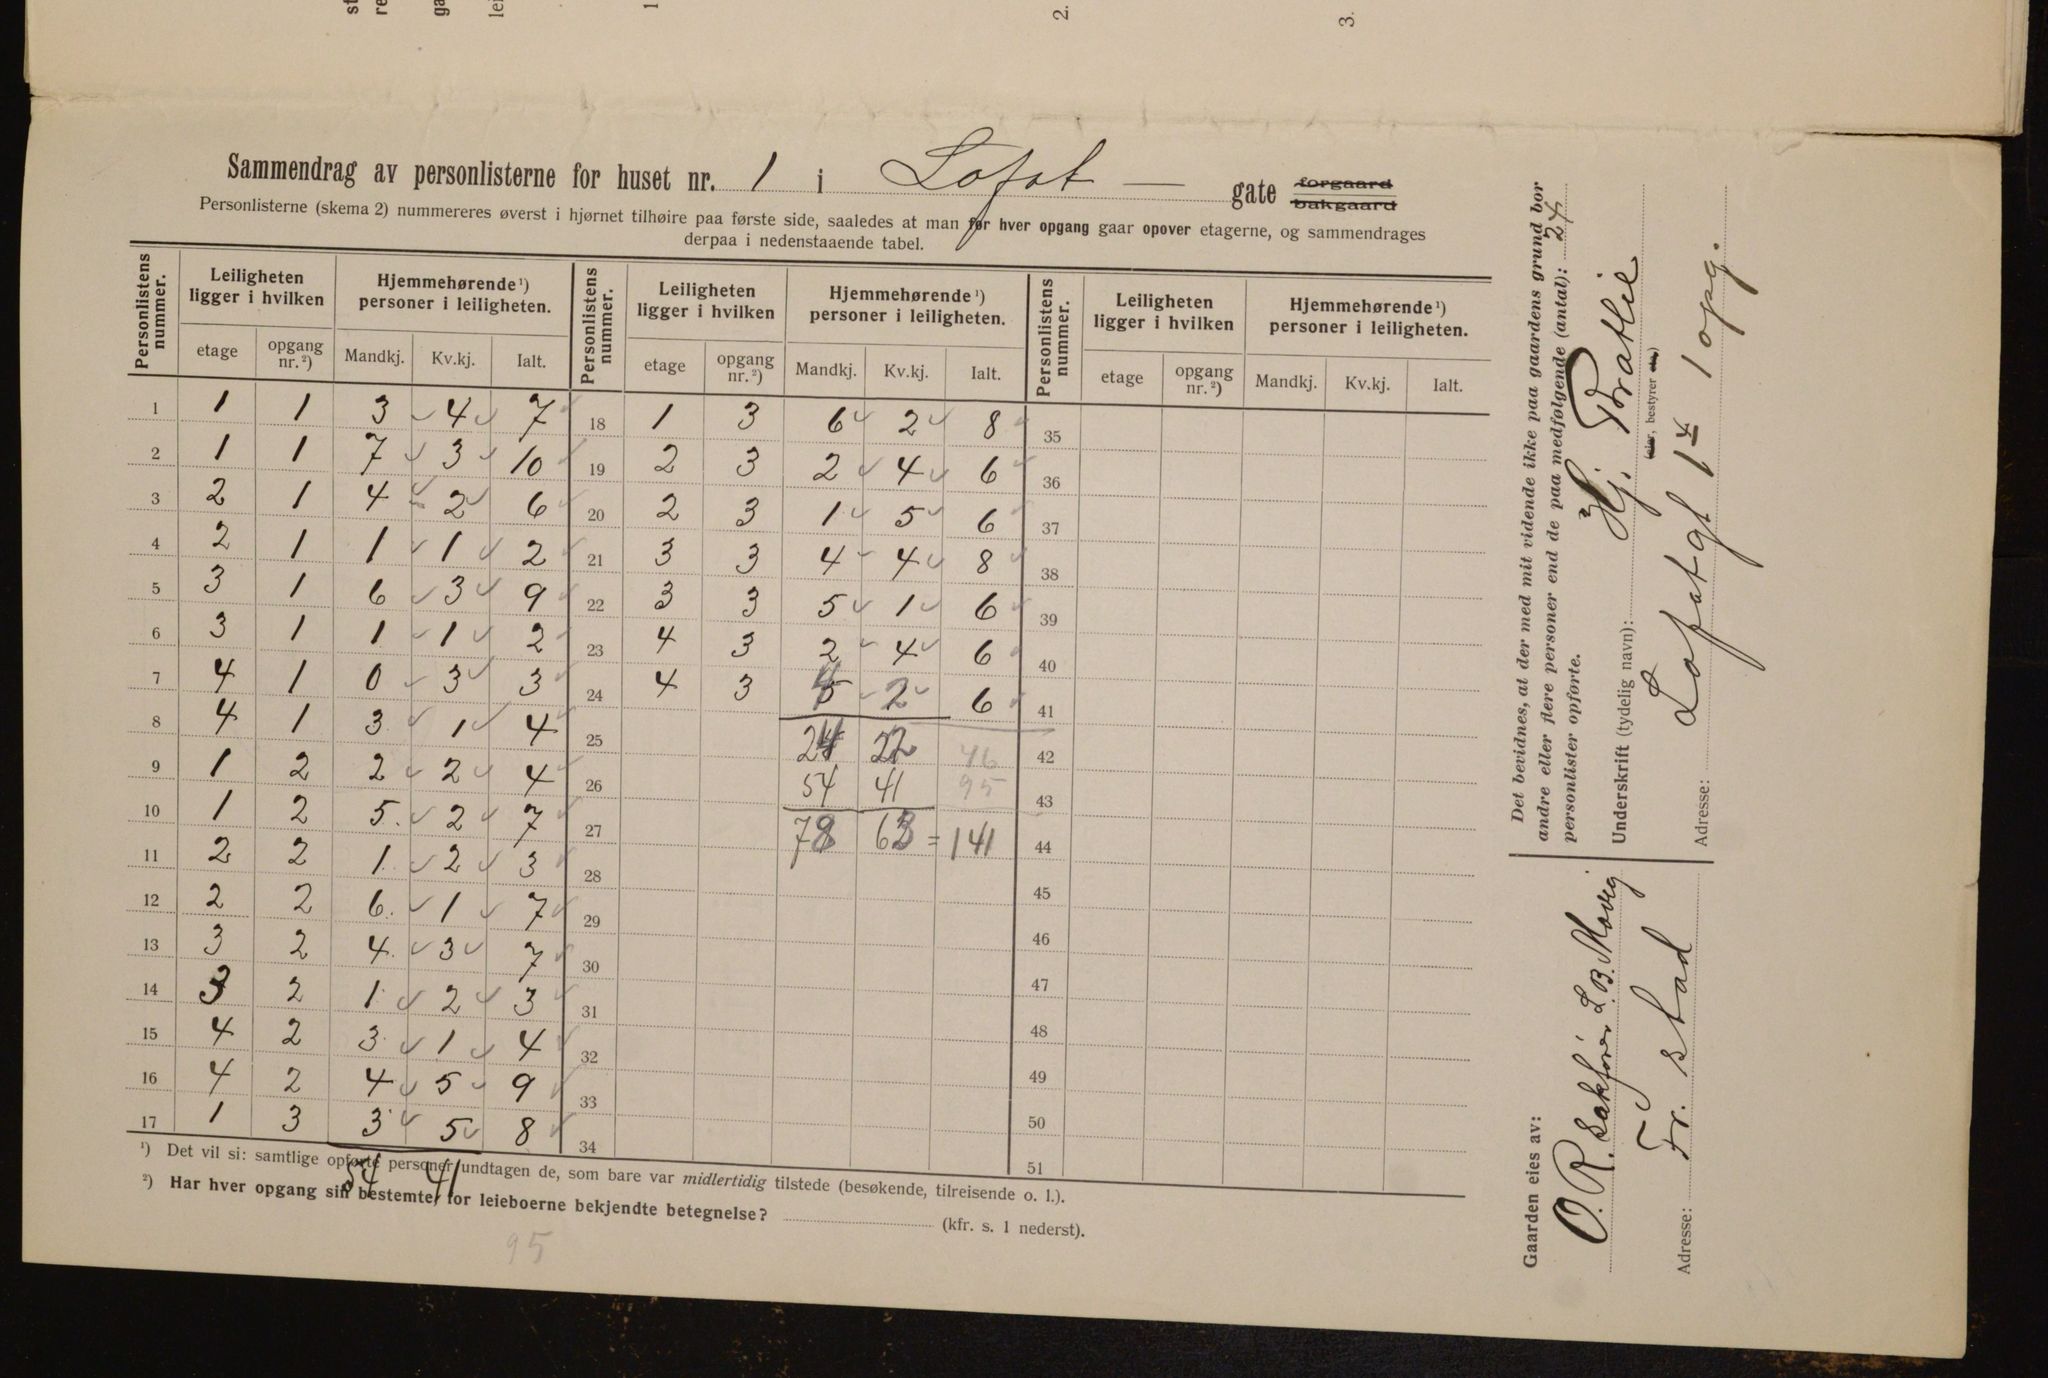 st
re
ga
lei
1
2.
3.
Sammendrag av personlisterne for huset nr. 1 i Lofot — gate forgaard bakgaard
Personlisterne (skema 2) nummereres øverst i hjørnet tilhøire paa første side, saaledes at man før hver opgang gaar opover etagerne, og sammendrages
derpaa i nedenstaaende tabel.
Personlistens nummer. Leiligheten ligger i hvilken Hjemmehørende ¹) personer i leiligheten. Personlistens nummer. Leiligheten ligger i hvilken Hjemmehørende ¹) personer i leiligheten. Personlistens nummer. Leiligheten ligger i hvilken Hjemmehørende ¹) personer i leiligheten.
etage opgang nr. ²) Mandkj. Kv.kj. Ialt. etage opgang nr. ²) Mandkj. Kv.kj. Ialt. etage opgang nr. ²) Mandkj. Kv.kj. Ialt.
1 1 1 3 4 7 18 1 3 6 2 8 35
2 1 1 7 3 10 19 2 3 2 4 6 36
3 2 1 4 2 6 20 2 3 1 5 6 37
4 2 1 1 1 2 21 3 3 4 4 8 38
5 3 1 6 3 9 22 3 3 5 1 6 39
6 3 1 1 1 2 23 4 3 2 4 6 40
7 4 1 0 3 3 24 4 3 4 2 6 41
8 4 1 3 1 4 25 24 22 46 42
9 1 2 2 2 4 26 54 41 95 43
10 1 2 5 2 7 27 78 63 = 141 44
11 2 2 1 2 3 28 45
12 2 2 6 1 7 29 46
13 3 2 4 3 7 30 47
14 3 2 1 2 3 31 48
15 4 2 3 1 4 32 49
16 4 2 4 5 9 33 50
17 1 3 3 5 8 34 51
54 41
¹) Det vil si: samtlige opførte personer undtagen de, som bare var midlertidig tilstede (besøkende, tilreisende o. l.).
²) Har hver opgang sin bestemte, for leieboerne bekjendte betegnelse? (kfr. s. 1 nederst).
95
Det bevidnes, at der med mit vidende ikke paa gaardens grund bor
andre eller flere personer end de paa medfølgende (antal): 24
personlister opførte.
Hj. Brathil
Underskrift (tydelig navn):
(eier, bestyrer etc.)
Lofotgt 1 4 1 opg.
Adresse:
Gaarden eies av:
O. R. Sakfører L. B. Moveg
Fr. stad
Adresse: